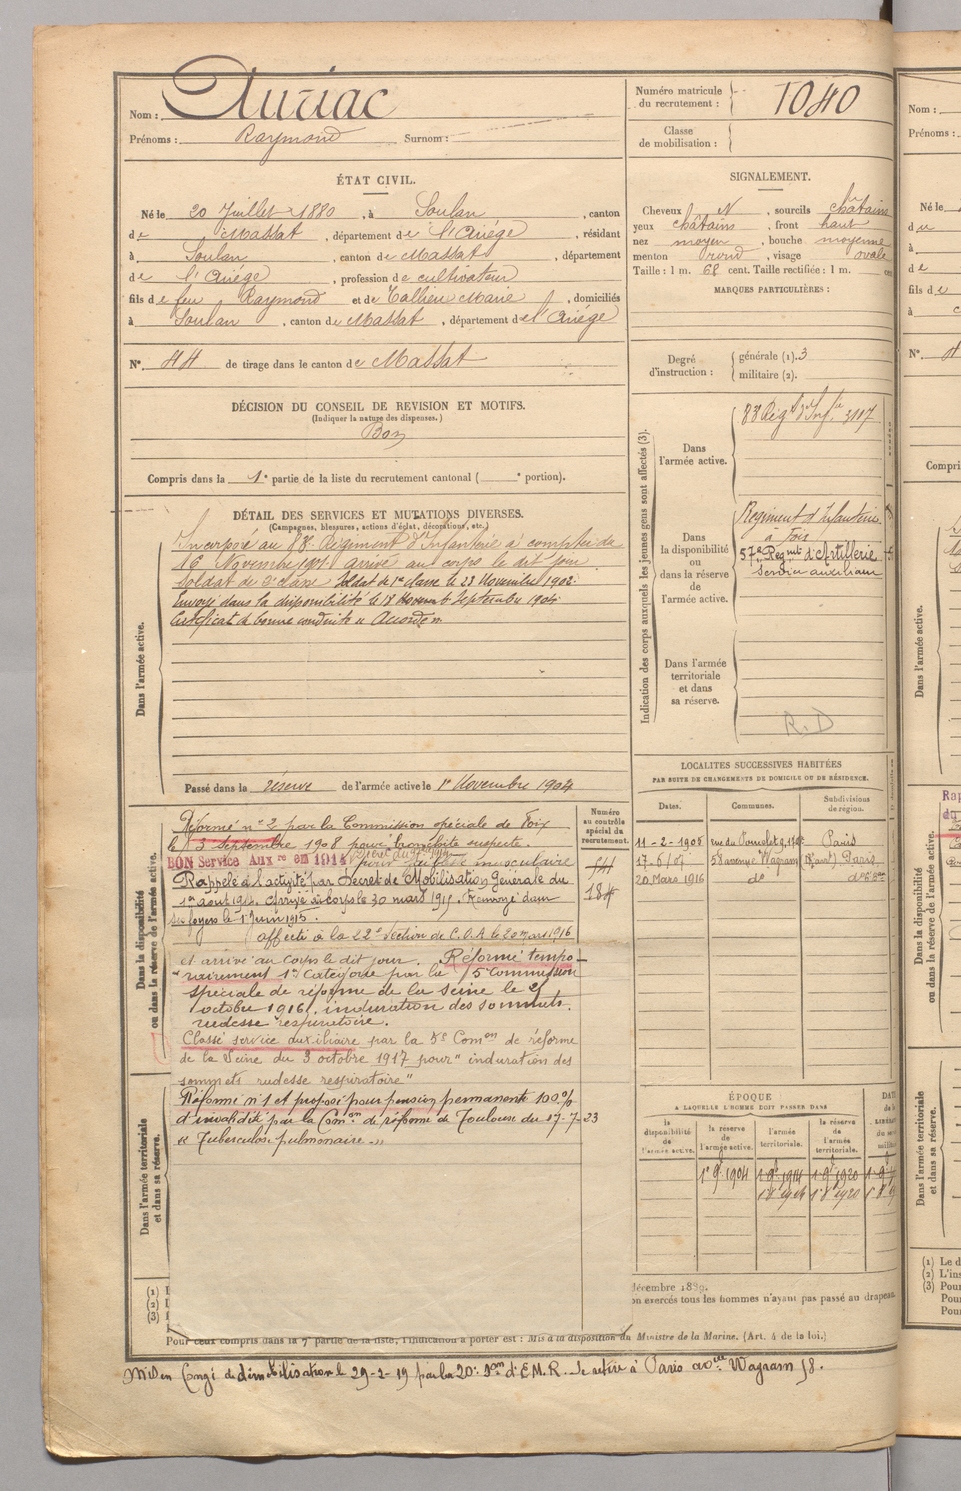 Nom : Auriac
Prénoms : Raymond Surnom :
ÉTAT CIVIL.
Né le 20 Juillet 1880, à Soulan, canton
de Massat, département de l'Ariège, résidant
à Soulan, canton de Massat, département
de l'Ariège, profession de cultivateur
fils de feu Raymond et de Tallieu Marie, domiciliés
à Soulan, canton de Massat, département de l'Ariège
N° 44 de tirage dans le canton de Massat
DÉCISION DU CONSEIL DE REVISION ET MOTIFS.
(Indiquer la nature des dispenses.)
Bon
Compris dans la 1e partie de la liste du recrutement cantonal ( e portion).
DÉTAIL DES SERVICES ET MUTATIONS DIVERSES.
(Campagnes, blessures, actions d'éclat, décorations, etc.)
Dans l'armée active.
Incorporé au 83e Régiment d'Infanterie à compter du
16 Novembre 1901 arrivé au corps le dit jour
soldat de 2e classe Soldat de 1e classe le 23 Novembre 1902.
Envoyé dans la disponibilité le 18 Septembre 1904
Certificat de bonne conduite "Accordé"
Passé dans la réserve de l'armée active le 1er Novembre 1904
Dans la disponibilité
ou dans la réserve de l'armée active.
Réformé n° 2 par la Commission spéciale de Foix
le 3 septembre 1908 pour bronchite suspecte.
BON Service Auxre en 1914 pour musculaire
Rappelé à l'activité par Décret de Mobilisation Générale du
1er août 1914. Arrivé au corps le 30 mars 1915. Renvoyé dans
ses foyers le 1er Juin 1915.
affecté à la 22e Section de C.O.A. le 20 mars 1916
et arrivé au Corps le dit jour. Réformé tempo-
rairement 1e Catégorie par la 5e Commission
spéciale de réforme de la Seine le 2
octobre 1916. induration des sommets.
rudesse respiratoire.
Classé service auxiliaire par la 5e Comon de réforme
de la Seine du 3 octobre 1917 pour "induration des
sommets rudesse respiratoire"
Réformé n° 1 et proposé pour pension permanente 100 %
d'invalidité par la Comon de réforme de Toulouse du 17-7-23
"Tuberculose pulmonaire"
Dans l'armée territoriale
et dans sa réserve.
(1)
(2)
(3)
Pour ceux compris dans la 7e partie de la liste, l'indication à porter est : Mis à la disposition du Ministre de la Marine. (Art. 4 de la loi.)
Mis en Congé de démobilisation le 29-2-19 par la 20e Son d'E.M.R. Se retire à Paris avenue Wagram 58.
Numéro
au contrôle
spécial du
recrutement.
Numéro matricule
du recrutement : 1040
Classe
de mobilisation :
SIGNALEMENT.
Cheveux N, sourcils châtains
yeux châtains, front haut
nez moyen, bouche moyenne
menton rond, visage ovale
Taille : 1 m. 68 cent. Taille rectifiée : 1 m.
MARQUES PARTICULIÈRES :
Degré
d'instruction :
générale (1). 3
militaire (2).
Indication des corps auxquels les jeunes gens sont affectés (3).
Dans
l'armée active.
83 Régt d'Infie 3107
Dans
la disponibilité
ou
dans la réserve
de
l'armée active.
Régiment d'Infanterie
à Foix
57e Regmt d'Artillerie
Service auxiliaire
Dans l'armée
territoriale
et dans
sa réserve.
R.D
LOCALITES SUCCESSIVES HABITÉES
PAR SUITE DE CHANGEMENTS DE DOMICILE OU DE RÉSIDENCE.
Dates. Communes. Subdivisions de région.
11-2-1906 Paris
58 avenue Wagram Paris
20 Mars 1916 do
ÉPOQUE
A LAQUELLE L'HOMME DOIT PASSER DANS
la disponibilité de l'armée active.
la réserve de l'armée active.
l'armée territoriale.
la réserve de l'armée territoriale.
1e 9bre 1904 1 9bre 1914 1 9bre 1920
1 8bre 1914 1 8bre 1920
décembre 1889.
on exercés tous les hommes n'ayant pas passé au drapeau